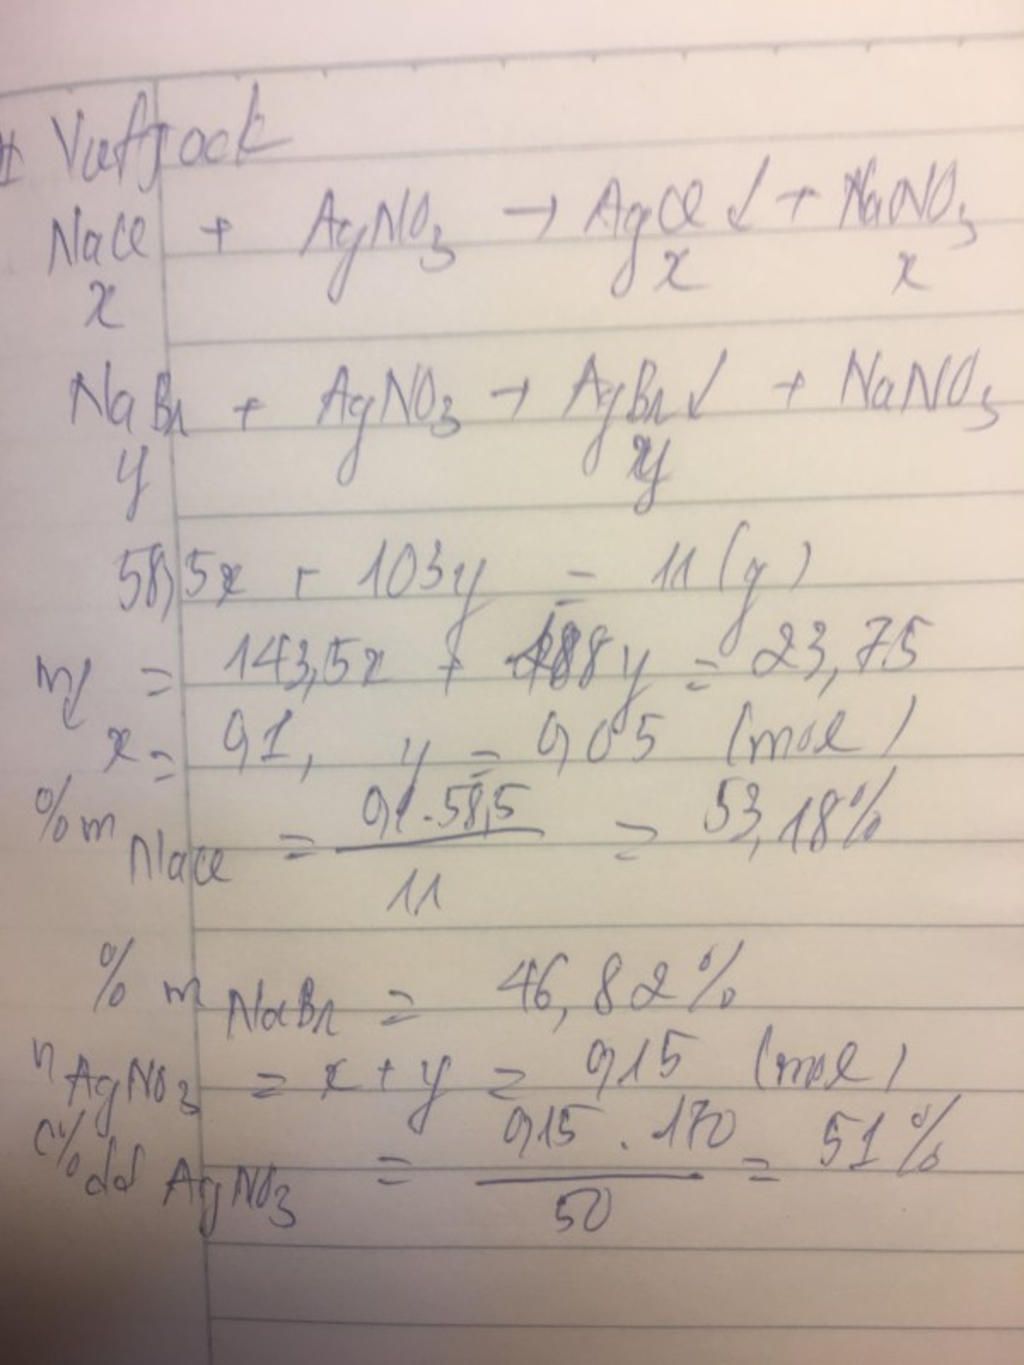 Vuffjock
NaCl + AgNO3 → AgCl ↓ + NaNO3
x x x
NaBr + AgNO3 → AgBr ↓ + NaNO3
y y
58,5x + 103y = 11 (g)
m↓ = 143,5x + 188y = 23,75
x = 0,1, y = 0,05 (mol)
%m NaCl = 0,1.58,5 / 11 = 53,18%
%m NaBr = 46,82%
n AgNO3 = x + y = 0,15 (mol)
C% dd AgNO3 = 0,15 . 170 / 50 = 51%